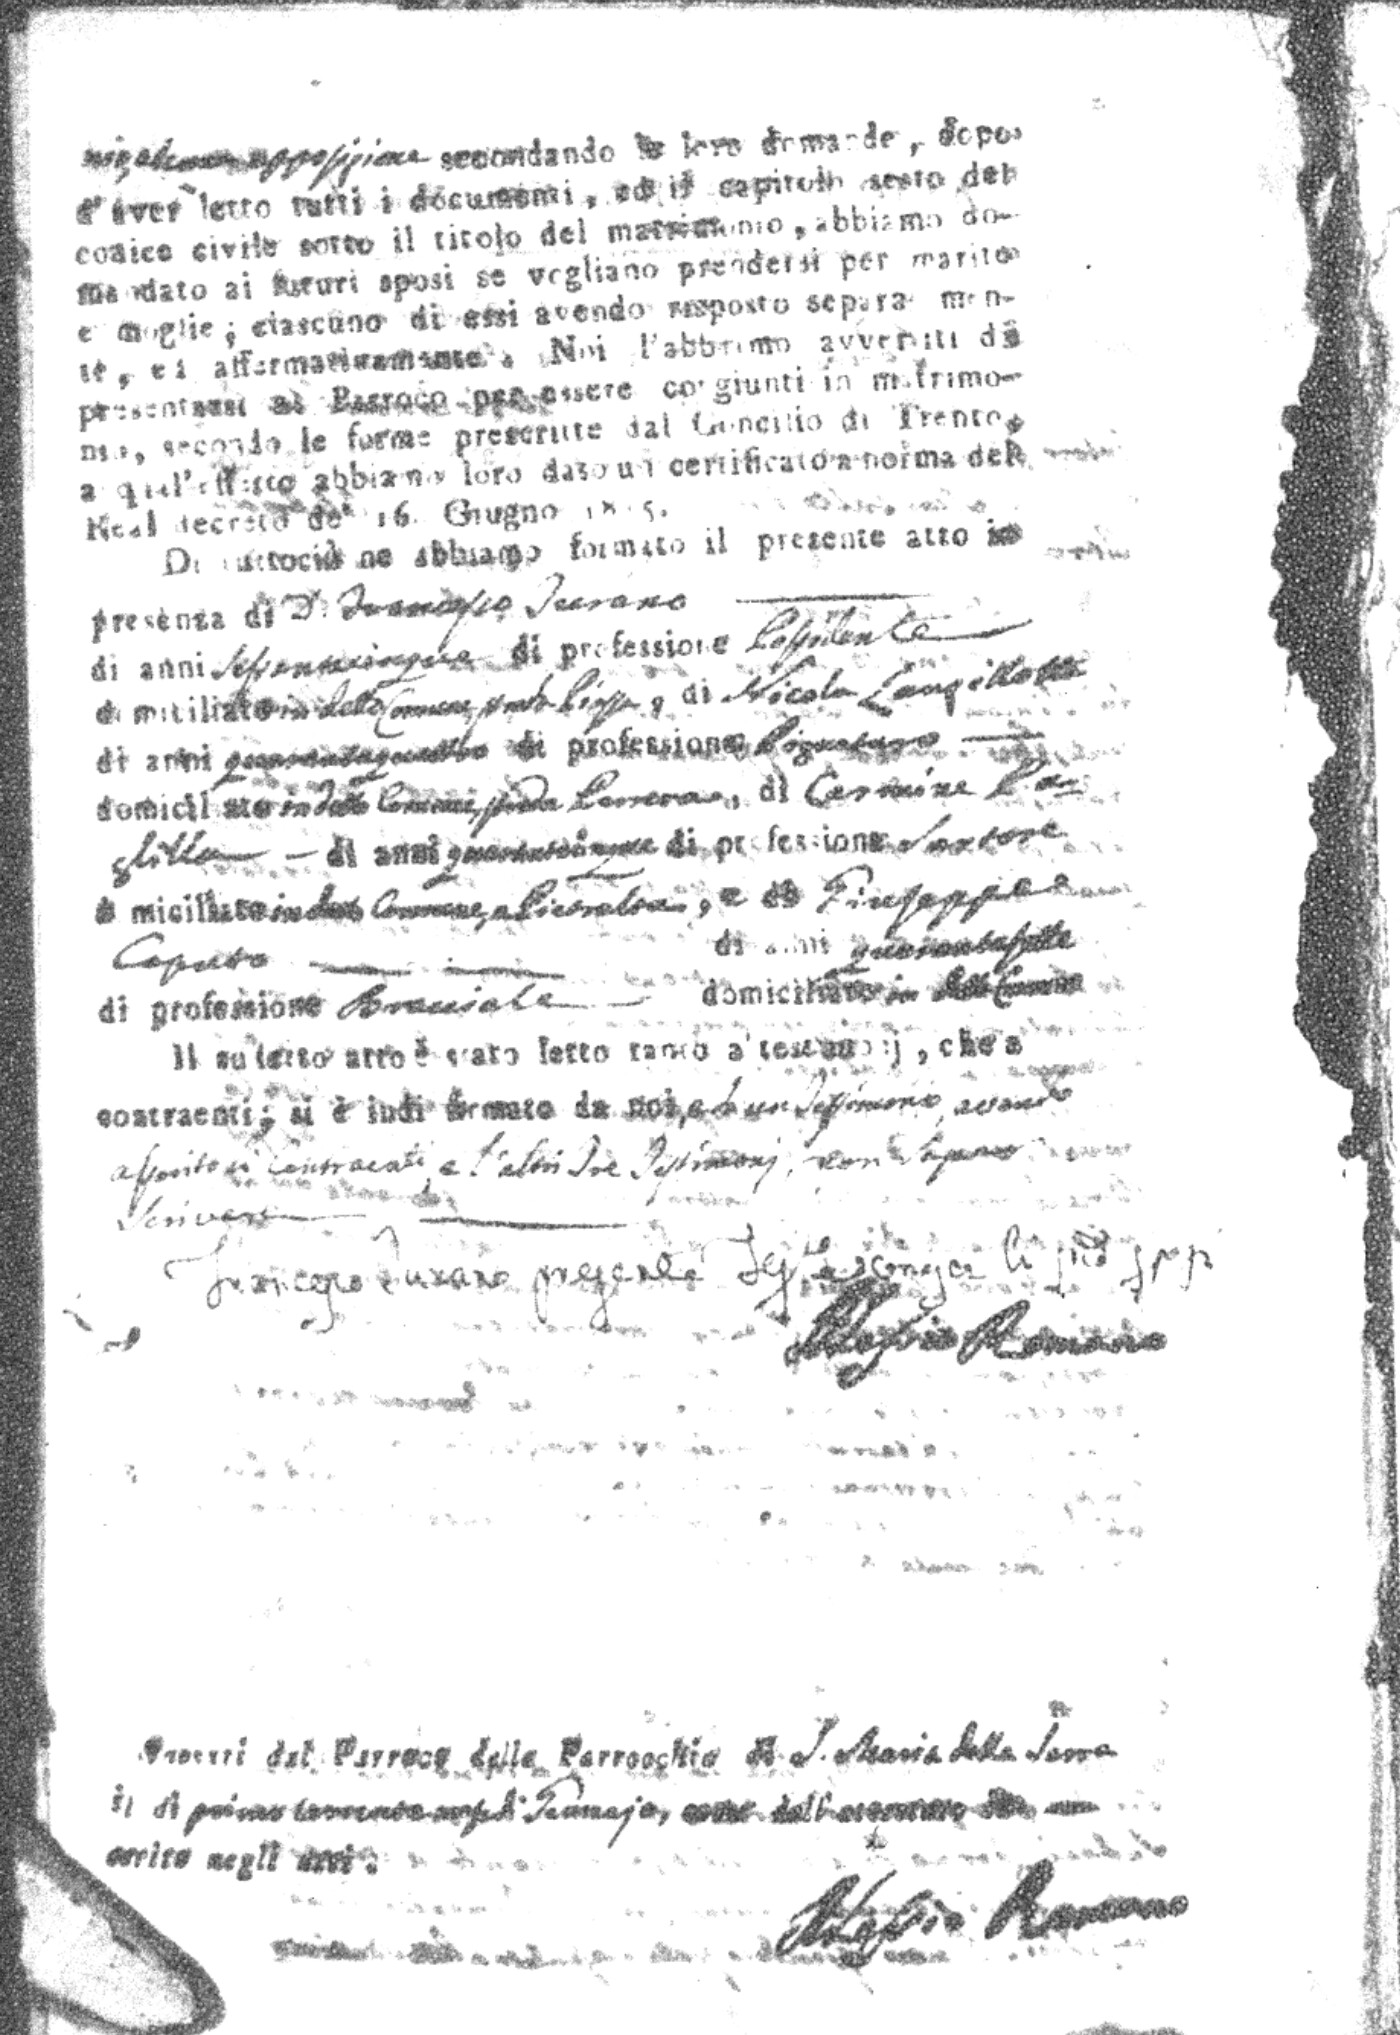 opposizione secondando le loro domande, dopo
d'aver letto tutti i documenti, ed il capitolo sesto del
codice civile sotto il titolo del matrimonio, abbiamo do-
mandato ai futuri sposi se vogliano prendersi per marito
e moglie; ciascuno di essi avendo risposto separa men-
te, ed affermativamente. Noi l'abbiamo avvertiti di
presentarsi al Parroco per essere congiunti in matrimo-
nio, secondo le forme prescritte dal Concilio di Trento,
a quel'effetto abbiamo loro dato un certificato a norma del
Real decreto de' 16. Giugno 1815.
Di tuttociò ne abbiamo formato il presente atto in
presenza di D. Francesco Turano
di anni sessantacinque di professione Possidente
domiciliato in detto Comune, di Nicola Lanzillotta
di anni quarantaquattro di professione Pignataro
domiciliato in detto Comune, di Carmine Pa-
glilla di anni quarantacinque di professione Sartore
domiciliato in detto Comune, e di Giuseppe
Caputo di anni quarantasette
di professione Bracciale domiciliato in detto Comune
Il sudetto atto è stato letto tanto a' testimonj, che a
contraenti; si è indi firmato da noi, e da un Testimonio, avendo
asserito i Contraenti, e l'altri Tre Testimonj, non sapere
Scrivere
Francesco Turano presente
Alessio Romano
dal Parroco della Parrocchia di S. Maria della Serra
il di primo corrente mese di Gennajo, come dall'
scritto negli atti.
Alessio Romano